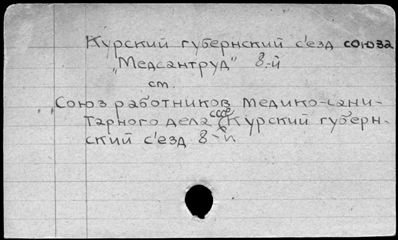 Курский губернский с'езд союза
„Медсантруд" 8-й
ст.
„Союз работников медико-сани-
тарного дела СССР (Курский губерн-
ский с'езд 8-й